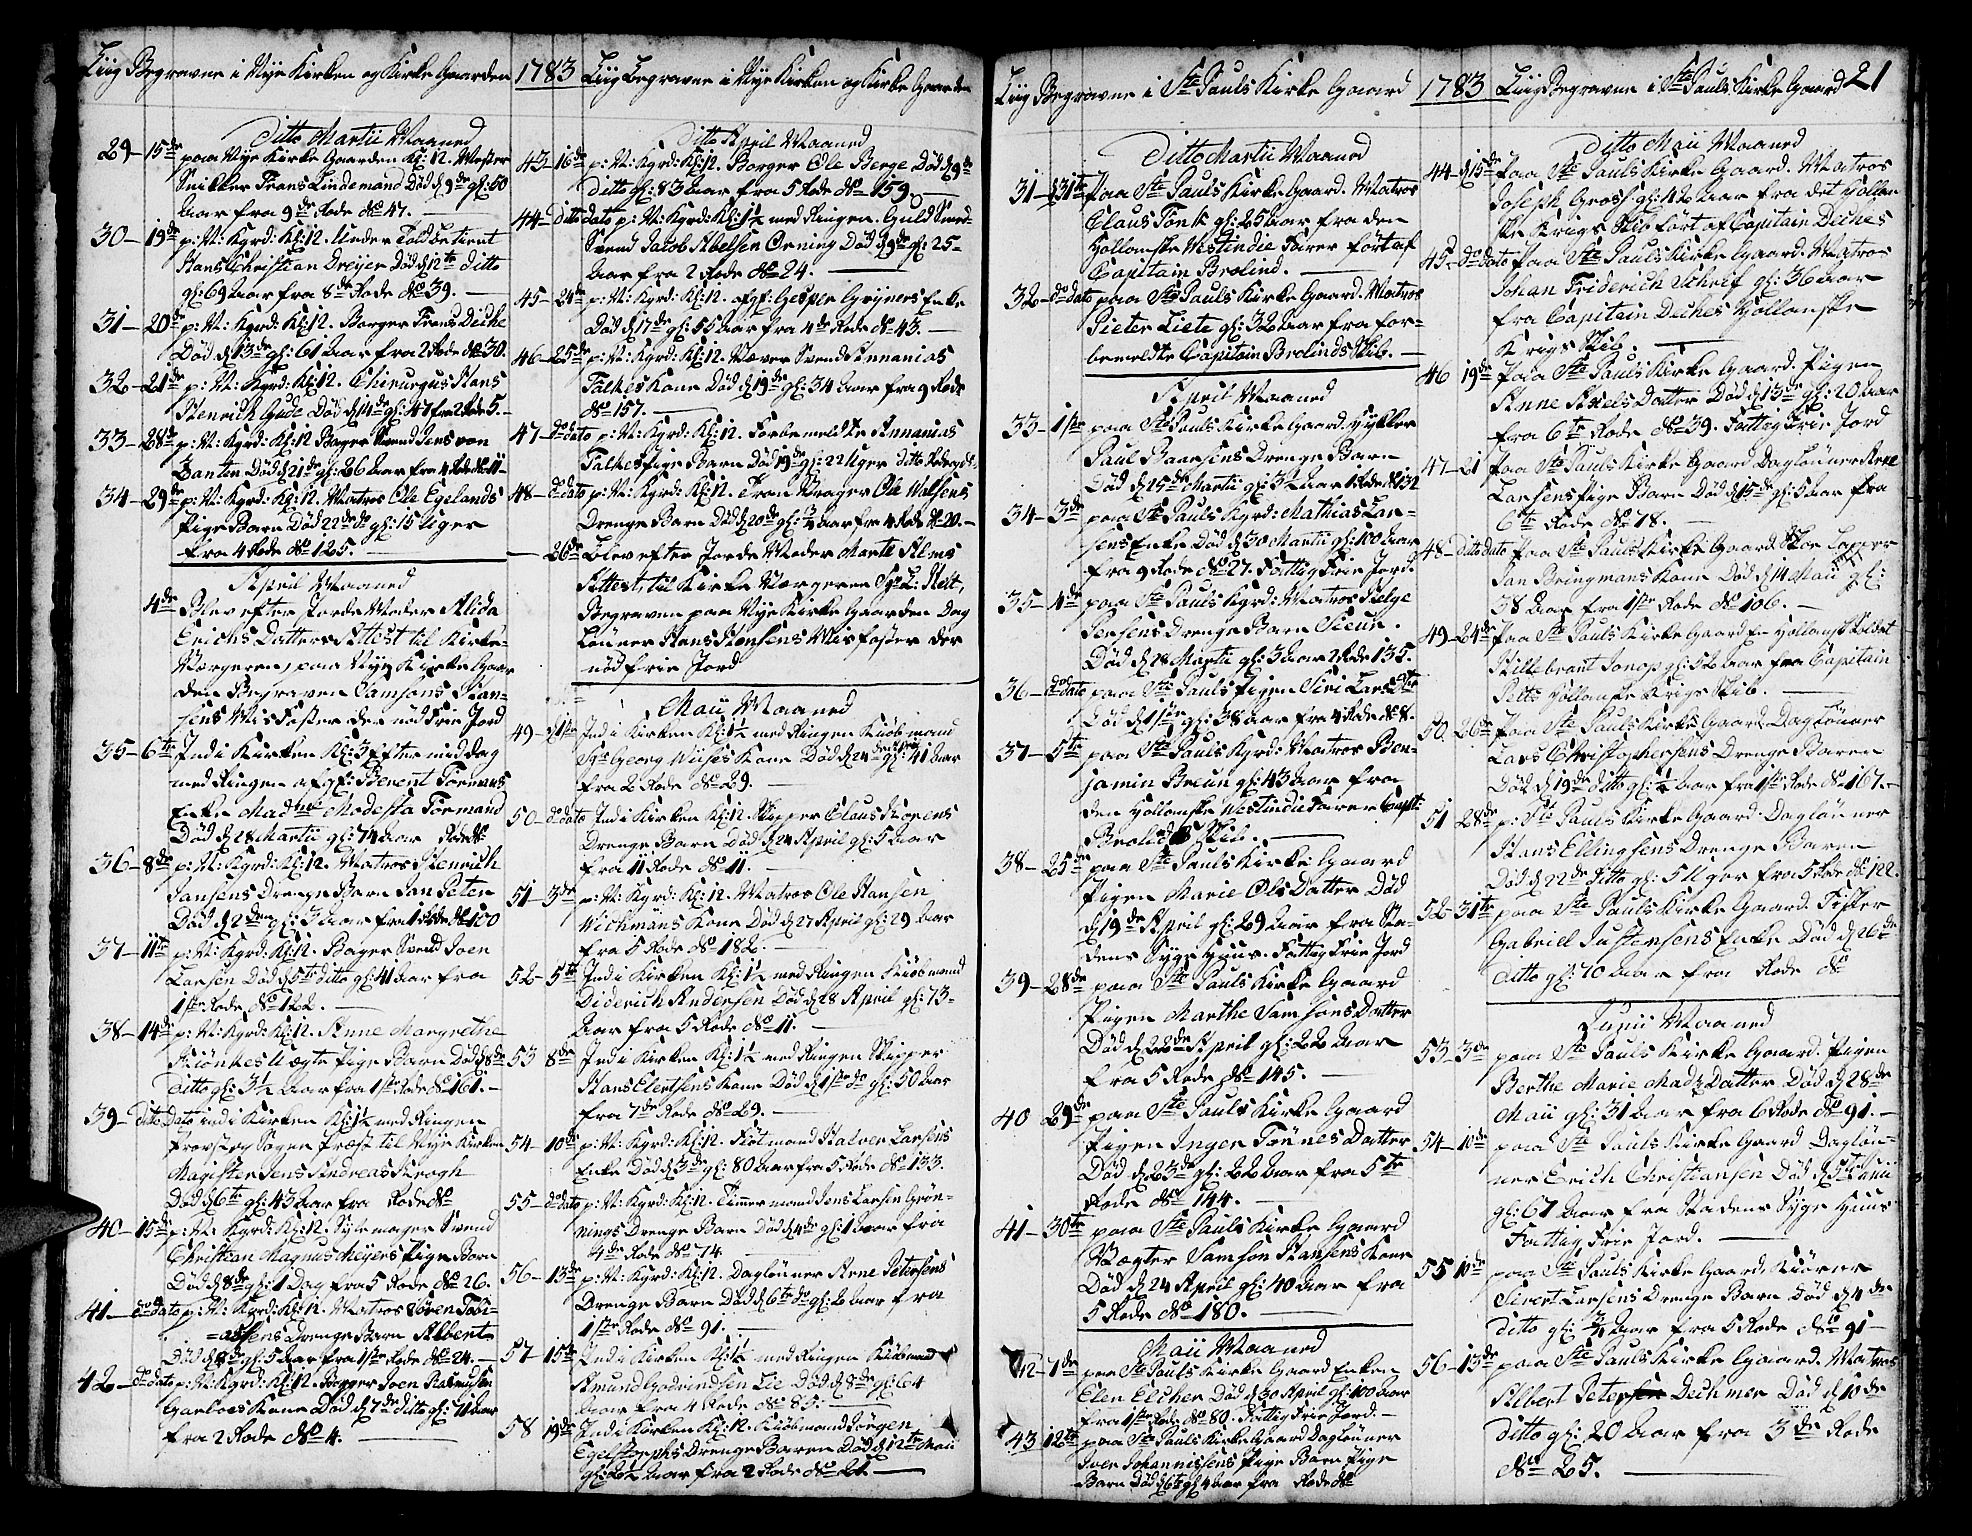 Liig Begravne i Nye Kirken og Kirke Gaarden
1783
Ditto Martii Maaned
29 - 15de paa Nye Kirke Gaarden Kl: 12. Mester
Snikker Frans Lindemand Død d 9de gl: 50
Aar fra 9de Rode No 47. —
30 - 19de p: N: Kgrd: Kl: 12. Under Told betient
Hans Christian Dreyer Død d 12te ditto
gl: 69 Aar fra 8de Rode No 39. —
31 - 20de p: N: Kgrd: Kl: 12. Borger Frans Deiche
Død d 13de gl: 61 Aar fra 2 Rode No 30.
32 - 21de p: N: Kgrd: Kl: 12. Chirurgus Hans
Henrich Gude Død d 14de gl: 47 fra 2 Rode 5. —
33 - 28de p: N: Kgrd: Kl: 12 Bager Svend Jens von
Zanten Død d 21de gl: 26 Aar fra 4 Rode No 11 —
34 - 29de p: N: Kgrd: Kl: 12. Matros Ole Egelands
Pige Barn Død 22de do gl: 15 Uger
fra 4 Rode No 125. —
April Maaned
4de Blev efter Jorde Moder Alida
Erichs Datters Attest til Kirke-
Værgeren, paa Nye Kirke Gaar
den Begraven Samsons Han-
sens Mis Foster der nød Frie Jord
35 - 6te Ind i Kirken Kl: 3 Efter middag
med Ringen afgl: Berent Formans
Enke Madme Modesta Formand
Død d 28 Martii gl: 74 Aar Rode No
36 - 8de p: N: Kgrd: Kl: 12. Matros Henrich
Jansens Drenge Barn Jan Peter
Død d 2den gl: 3 Aar fra 1 Rode No 100
37 - 11te p: N: Kgrd: Kl: 12. Bager Svend Joen
Larsen Død d 5te ditto gl: 41 Aar fra
1ste Rode No 122. —
38 - 14de p: N: Kgrd: Kl: 12. Anne Margrethe
Uægte Pige Barn Død d 8de
Ditto gl: 3½ Aar fra 1ste Rode No 161. —
39 - ditto Dato ind i Kirken Kl: 1½ med Ringen
Provst og Sogne Præst til Nye Kirken
Magister Jens Andreas Krogh
Død d 6te gl: 43 Aar fra Rode No
40 - 15de p: N: Kgrd: Kl: 12. Svend
Christian Magnus Meyers Pige Barn
Død d 8de gl: 1 Dag fra 5 Rode No 26.
41 - do dato p: N: Kgrd: Kl: 12. Matros Søren Tobi-
=asens Drenge Barn Albert
Død d 8de gl: 5 Aar fra 1ste Rode No 24. —
42 - do dato p: N: Kgrd: Kl: 12. Borger Joen Rasmusen
Garboes Kone Død d 7de ditto gl: 71 Aar
fra 2 Rode No 4. —
Liig Begravne i Nye Kirken og Kirke Gaarden
Ditto April Maaned
43 - 16de p: N: Kgrd: Kl: 12. Borger Ole Berge Død d 9de
ditto gl: 83 Aar fra 5 Rode No 159. —
44 - ditto dato p: N: Kgrd: Kl: 1½ med Ringen. Guld Smed
Svend Jacob Abelsen Orning Død d 9de gl: 25 -
Aar fra 2 Rode No 24. —
45 - 24de p: N: Kgrd: Kl: 12. afgl: Gesper Greyners Enke
Død d 17de gl: 55 Aar fra 4de Rode No 43. —
46 - 25de p: N: Kgrd: Kl: 12. Væver Svend Annanias
Falkes Kone Død d 19de gl: 34 Aar fra 9 Rode
No 157. —
47 - do dato p: N: Kgrd: Kl: 12. Forbemeldte Annanias
Falkes Pige Barn Død 19de gl: 22 Uger ditto Rode og No
48 - do dato p: N: Kgrd: Kl: 12. Tran Vrager Ole Walsens
Drenge Barn Død d 20de gl: ¾ Aar fra 4 Rode No 20. —
— 26de Blev efter Jorde Moder Marte Alms
Attest, til Kirke Værgeren Sgr L: Helt,
Begraven paa Nye Kirke Gaarden Dag
Lønner Hans Hansens Misfoster der
nød frie Jord
Maii Maaned
49 - d 1ste Ind i Kirken Kl: 1½ med Ringen Kiøbmand
Sgr Georg Wises Kone Død d 24de April gl: 41 Aar
fra 2 Rode No 29. —
50 - do dato Ind i Kirken Kl: 12. Skipper Claus
Drenge Barn Død d 24 April gl: 5 Aar
fra 11 Rode No 11. —
51 - 3de p: N: Kgrd: Kl: 12. Matros Ole Hansen
Wichmans Kone Død d 27 April gl: 29 Aar
fra 5 Rode No 182. —
52 - 5te Ind i Kirken Kl: 1½ med Ringen Kiøbmand
Diderich Andersen Død d 28 April gl: 73 -
Aar fra 5 Rode No 11. —
53 8de Ind i Kirken Kl: 1½ med Ringen Skipper
Hans Elertsens Kone Død d 1ste do gl: 50 Aar
fra 7de Rode No 29. —
54 - 10de p: N: Kgrd: Kl: 12. Fløtmand Halvor Larsens
Enke Død d 3de gl: 80 Aar fra 5 Rode No 133.
55 - do dato p: N: Kgrd: Kl: 12. Timmermand Jens Larsen Grøn-
nings Drenge Barn Død d 4de gl: 1 Aar fra
4de Rode No 74. —
56 - 13de p: N: Kgrd: Kl: 12. Dagløner Arne Petersens
Drenge Barn Død d 6te do gl: 2 Aar fra
1ste Rode No 91. —
57 - 15de Ind i Kirken Kl: 1½ med Ringen Kiøbmand
Amund Godvindsen Lie Død d 8de gl: 64
Aar fra 4 Rode No 85. —
58 19de Ind i Kirken Kl: 12. Kiøbmand Jørgen
Drenge Baren Død d 12te Maii
gl: 2½ Aar fra 2 Rode No 21. —
Liig Begravne i Ste Pauls Kirke Gaard
1783
Ditto Martii Maaned
31 - d 31te Paa Ste Pauls Kirke Gaard. Matros
Claus Tonk gl: 25 Aar fra den
Hollanske Westindie Farer ført af
Capitain Brolind. —
32 - do dato paa Ste Pauls Kirke Gaard. Matros
Pieter Liete gl: 32 Aar fra for-
bemeldte Capitain Brolinds Skib. —
April Maaned
33 - 1ste paa Ste Pauls Kirke Gaard. Hykker
Paul Baarsens Drenge Barn
Død d 25de Martii gl: 3½ Aar 1 Rode No 132
34 - 3de paa Ste Pauls Kgrd: Mathias Lar-
sens Enke Død d 30 Martii gl: 100 Aar
fra 9 Rode No 27. Fattig Frie Jord.
35 - 4de paa Ste Pauls Kgrd: Matros Helge
Pensens Drenge Barn Sieur.
Død d 28 Martii gl: 3 Aar 2 Rode 135.
36 - do dato paa Ste Pauls Pigen Siri Lars Dtr
Død d 1ste gl: 38 Aar fra 4 Rode No 8.
37 - 5te paa Ste Pauls Kgrd: Matros Ben-
jamin Breun gl: 43 Aar fra
den Hollanske Westindie Farer Capit:
Brolinds Skib. —
38 - 25de paa Ste Pauls Kirke Gaard
Pigen Marie Ols Datter Død
d 19de April gl: 29 Aar fra Sta-
dens Syge Huus. Fattig Frie Jord
39 - 28de paa Ste Pauls Kirke Gaard
Pigen Marthe Samsons Datter
Død d 22de April gl: 22 Aar
fra 5 Rode No 145. —
40 29de paa Ste Pauls Kirke Gaard
Pigen Inger Tønnes Datter
Død d 23de gl: 22 Aar fra 5te
Rode No 144. —
41 - 30te paa Ste Pauls Kirke Gaard
Vægter Samson Hansens Kone
Død d 24 April gl: 40 Aar fra
5 Rode No 180. —
Maii Maaned
42 - 7de paa Ste Pauls Kirke Gaard Enken
Elen Elcher Død d 30 April gl: 100 Aar
fra 1ste Rode No 80. Fattig Frie Jord. —
43 12te paa Ste Pauls Kirke Gaard Dagløner
Iver Johannissens Pige Barn Pige
Barn Død d 6te gl: 4 Aar fra Rode No
Liig Begravne i Ste Pauls Kirke Gaard 21
Ditto Maii Maaned
44 d 15de Paa Ste Pauls Kirke Gaard. Matros
Joseph Gross gl: 42 Aar fra det Hollan
ske Krigs Skib ført af Capitain Deches
45. do dato Paa Ste Pauls Kirke Gaard. Matros
Johan Friderich Schrif gl: 36 Aar
fra Capitain Deches Hollanske
Krigs Skib. —
46 19de Paa Ste Pauls Kirke Gaard. Pigen
Anne Axels Datter Død d 13de gl: 20 Aar
fra 6te Rode No 39. Fattig Frie Jord
47 - 21 Paa Ste Pauls Kirke Gaard Dagløner Arne
Larsens Pige Barn Død d 15de gl: 5 Aar fra
6te Rode No 78. —
48 - ditto dato Paa Ste Pauls Kirke Gaard Skoe Lapper
Jan Bringmans Kone Død d 14 Maii gl:
38 Aar fra 1ste Rode No 106. —
49 - 24de Paa Ste Pauls Kirke Gaard En Hollansk Soldat
Hillebrant Jonop gl: 52 Aar fra Capitain
Pelts Hollanske Krigs Skib. —
50 - 26de Paa Ste Pauls Kirke Gaard Dagløner
Lars Christophersens Drenge Baren
Død d 19de ditto gl: ½ Aar fra 1ste Rode No 167. —
51 28de p: St Pauls Kirke Gaard Dagløner
Hans Ellingsens Drenge Baren
Død d 22de ditto gl: 5 Uger fra 5 Rode No 122.
52 - 31te paa Ste Pauls Kirke Gaard. Fisker
Gabriel Justensens Enke Død d 26de
ditto gl: 70 Aar fra Rode No
Junii Maaned
53 3de paa Ste Pauls Kirke Gaard. Pigen
Berthe Marie Madz Datter Død d 28de
Maii gl: 31 Aar fra 6 Rode No 91. —
54 - 10de paa Ste Pauls Kirke Gaard Dagløn-
ner Erich Christiansen Død d 5te Junii
gl: 67 Aar fra Stadens Syge Huus
Fattig Frie Jord. —
55 10de paa Ste Pauls Kirke Gaard.
Sivert Larsens Drenge Barn Død d 4de
ditto gl: ¾ Aar fra 5 Rode No 91 —
56 - 13de paa Ste Pauls Kirke Gaard. Matros
Albert Petersen Dechmer Død d 10de
ditto gl: 20 Aar fra 3de Rode
No 25. —